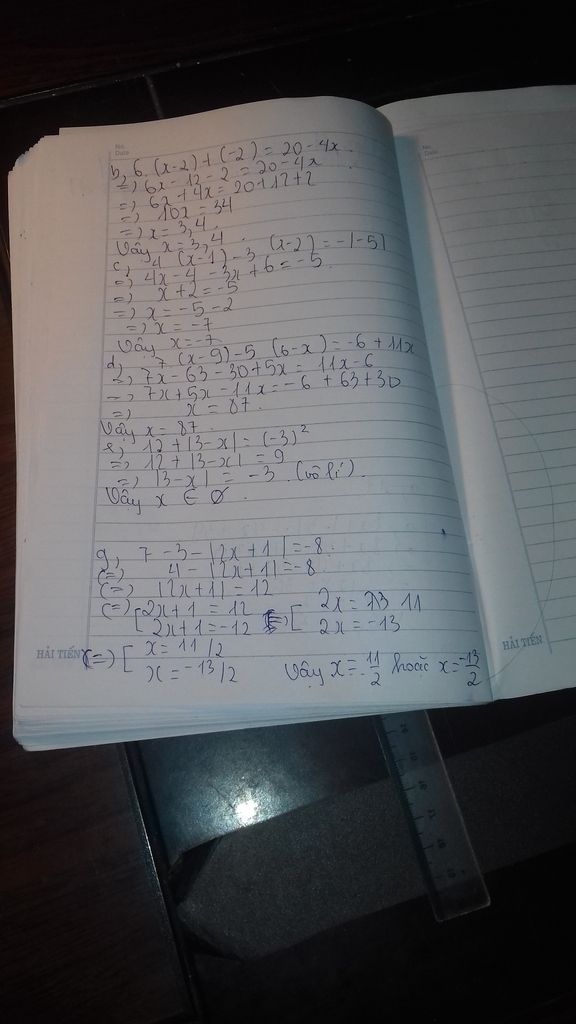 No.
Date
b, 6. (x-2) + (-2) = 20 - 4x.
=) 6x - 12 - 2 = 20 - 4x
=) 6x + 4x = 20+12+2
=) 10x = 34
=) x = 3,4.
Vậy x = 3,4.
c, 4 (x-1) - 3 (x-2) = -|-5|
=) 4x - 4 - 3x + 6 = -5
=) x + 2 = -5
=) x = -5 - 2
=) x = -7
Vậy x = -7
d, 7 (x-9) - 5 (6-x) = -6 + 11x
=) 7x - 63 - 30 + 5x = 11x - 6
=) 7x + 5x - 11x = -6 + 63 + 30
=) x = 87.
Vậy x = 87.
e, 12 + |3-x| = (-3)²
=) 12 + |3-x| = 9
=) |3-x| = -3 (vô lí).
Vậy x ∈ ∅
g, 7 - 3 - |2x+1| = -8
(=) 4 - |2x+1| = -8
(=) |2x+1| = 12
(=) [ 2x+1 = 12 (=) [ 2x = 11
2x+1 = -12 2x = -13
(=) [ x = 11/2
x = -13/2 Vậy x = 11/2 hoặc x = -13/2
HẢI TIẾN
No.
Date
HẢI TIẾN